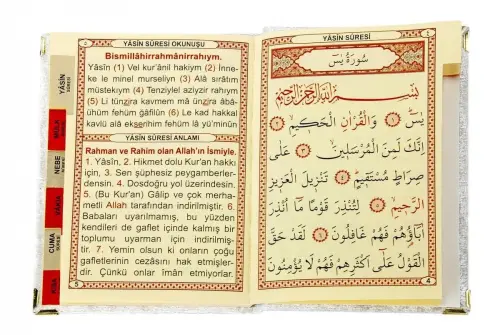 YÂSİN SÛRESİ
سُورَةُ يٰسٓ
بِسْمِ اللّٰهِ الرَّحْمٰنِ الرَّحِيمِ
يٰسٓ ﴿١﴾ وَالْقُرْاٰنِ الْحَكِيمِ ﴿٢﴾
اِنَّكَ لَمِنَ الْمُرْسَلِينَ ﴿٣﴾ عَلٰى
صِرَاطٍ مُسْتَقِيمٍ ﴿٤﴾ تَنْزِيلَ الْعَزِيزِ
الرَّحِيمِ ﴿٥﴾ لِتُنْذِرَ قَوْمًا مَٓا اُنْذِرَ
اٰبَٓاؤُهُمْ فَهُمْ غَافِلُونَ ﴿٦﴾ لَقَدْ حَقَّ
الْقَوْلُ عَلٰٓى اَكْثَرِهِمْ فَهُمْ لَا يُؤْمِنُونَ
4
YÂSİN SÛRESİ OKUNUŞU
Bismillâhirrahmânirrahıym.
Yâsîn (1) Vel kur'ânil hakiym (2) İnne-
ke le minel murseliyn (3) Alâ sırâtım
müstekıym (4) Tenziylel aziyzir rahıym
(5) Li tünzira kavmem mâ ünzira âbâ-
ühüm fehüm ğâfilûn (6) Le kad hakkal
kavlü alâ ekserihim fehüm lâ yü'minûn
YÂSİN SÛRESİ ANLAMI
Rahman ve Rahim olan Allah'ın İsmiyle.
1. Yâsîn, 2. Hikmet dolu Kur'an hakkı
için, 3. Sen şüphesiz peygamberler-
densin. 4. Dosdoğru yol üzerindesin.
5. (Bu Kur'an) Gâlip ve çok merha-
metli Allah tarafından indirilmiştir. 6.
Babaları uyarılmamış, bu yüzden
kendileri de gaflet içinde kalmış bir
toplumu uyarman için indirilmiş-
tir. 7. Yemin olsun ki onların çoğu
gafletlerinin cezasını hak etmişler-
dir. Çünkü onlar îmân etmiyorlar.
5
YÂSİN
SÛRESİ
MÜLK
NEBE
SÛRESİ
CUMA
SÛRESİ